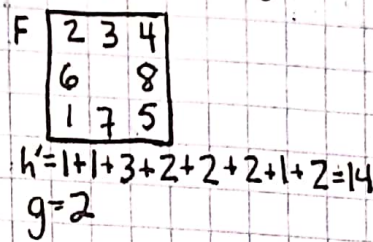 F 2 3 4
6 8
1 7 5
h'=1+1+3+2+2+2+1+2=14
g=2